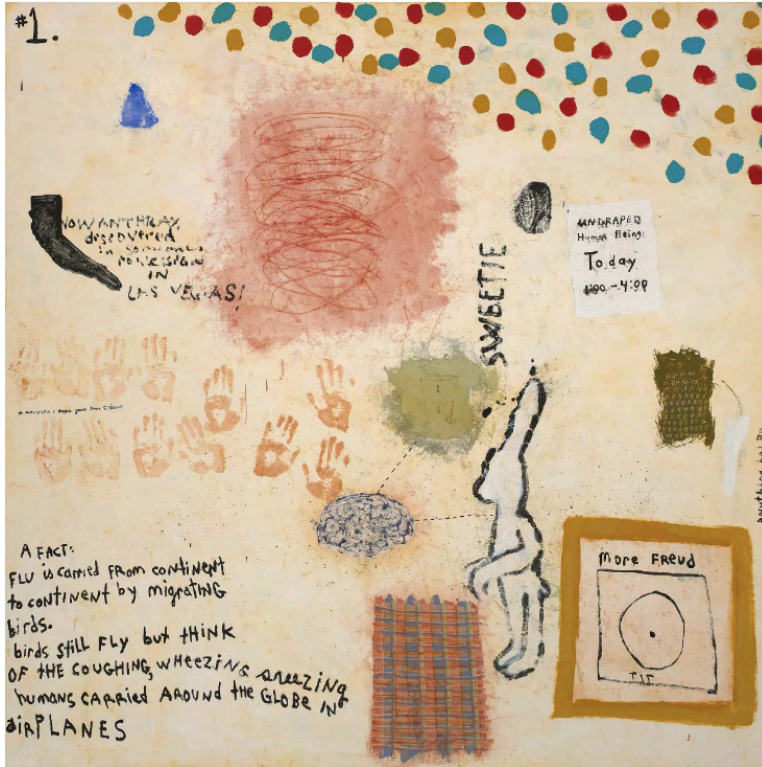 #1.
NOW ANTHRAX
discovered
in someones
POSSESSION
IN
LAS VEGAS!
SWEETIE
UNDRAPED
Human Being
Today
4:00
A FACT:
FLU is carried from continent
to continent by migrating
birds.
birds still FLY but THINK
OF THE COUGHING, WHEEZING sneezing
humans CARRIED AROUND the GLOBE IN
AIRPLANES
More FREUD
TIT